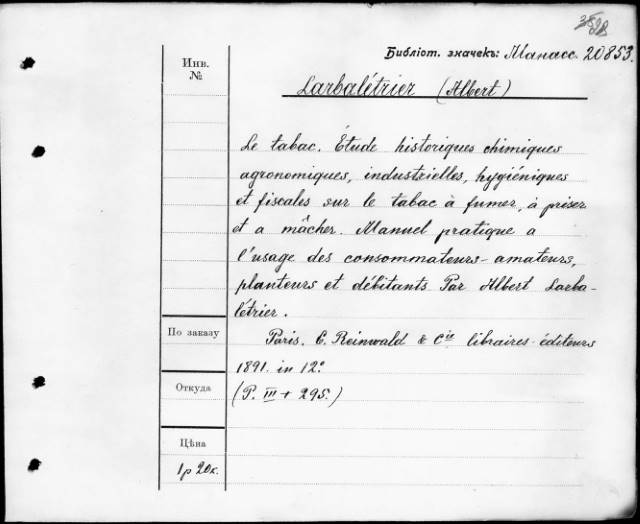 Библіот. значекъ: Манасс. 20853.
Инв.
№
Larbalétrier (Albert)
Le tabac. Étude historiques chimiques
agronomiques, industrielles, hygiéniques
et fiscales sur le tabac à fumer, à priser
et a mâcher. Manuel pratique a
l'usage des consommateurs-amateurs,
planteurs et débitants Par Albert Larba-
létrier.
По заказу
Paris. C. Reinwald & Cie libraires-éditeurs
1891. in 12º
Откуда
(P. III + 295.)
Цѣна
1 р 20 к.